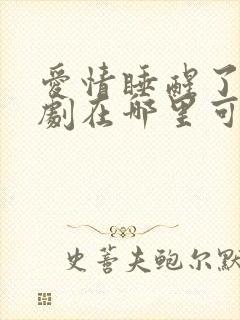 爱情睡醒了
劇在哪里可
史蒈夫鲍尔默